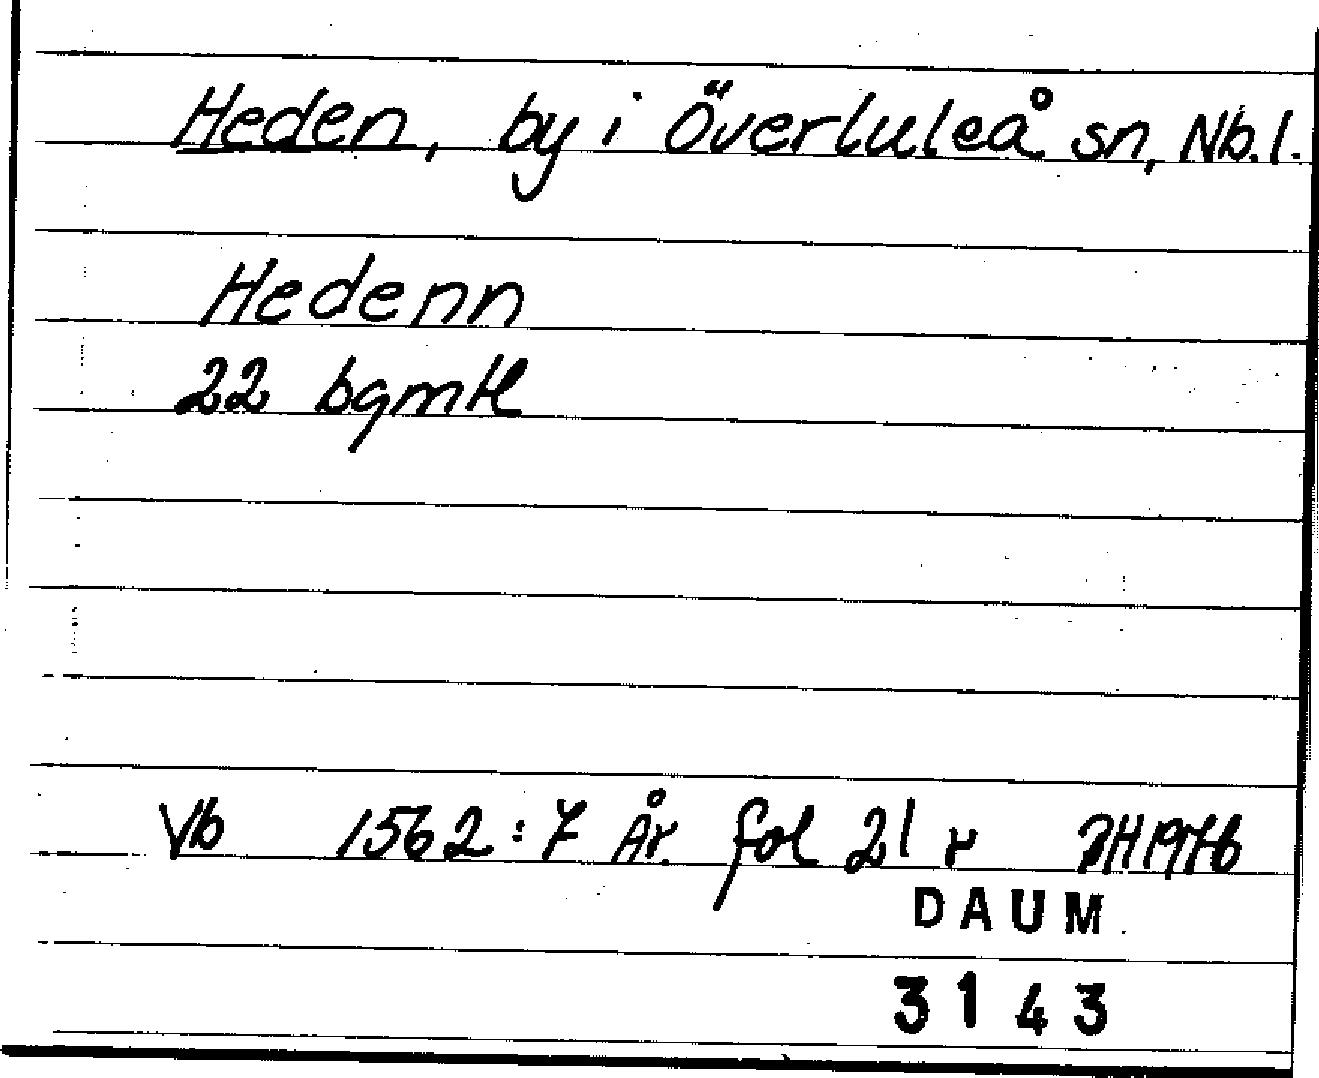 Heden, by i Överluleå sn, Nb.l.
Hedenn
22 bgmtl
Vb 1562:7 År. fol 21 r JH1976
DAUM
3143